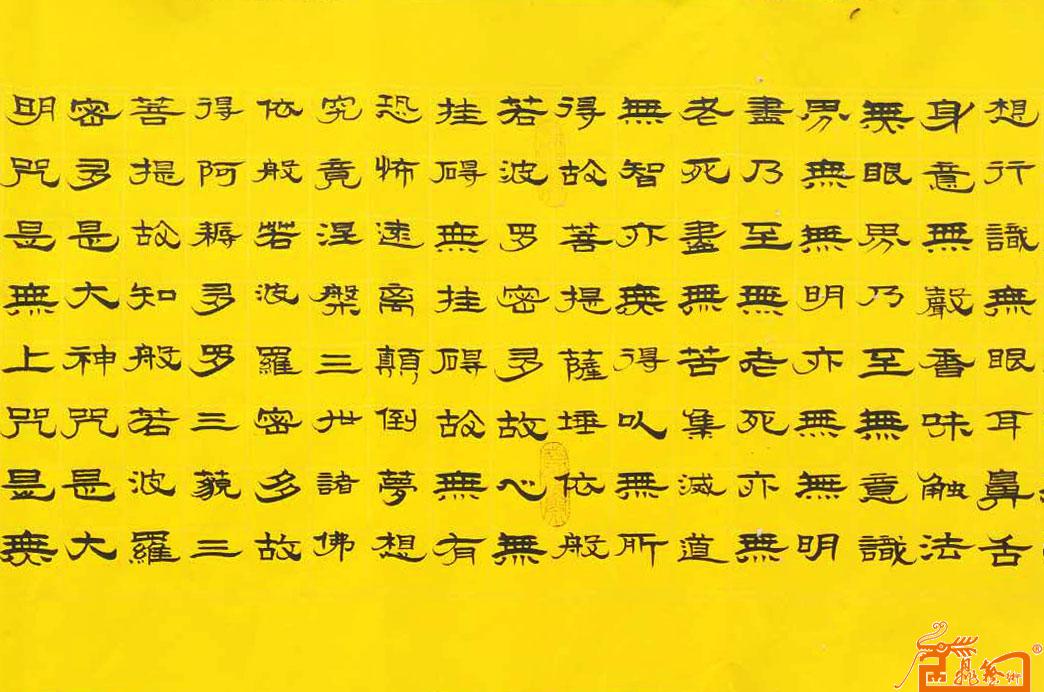 想行識無眼耳鼻舌
身意無聲香味触法
無眼界乃至無意識
界無無明亦無無明
盡乃至無老死亦無
老死盡無苦集滅道
無智亦無得以無所
得故菩提薩埵依般
若波罗密多故心無
挂碍無挂碍故無有
恐怖遠离顛倒夢想
究竟涅槃三世諸佛
依般若波羅密多故
得阿耨多罗三藐三
菩提故知般若波羅
密多是大神咒是大
明咒是無上咒是無